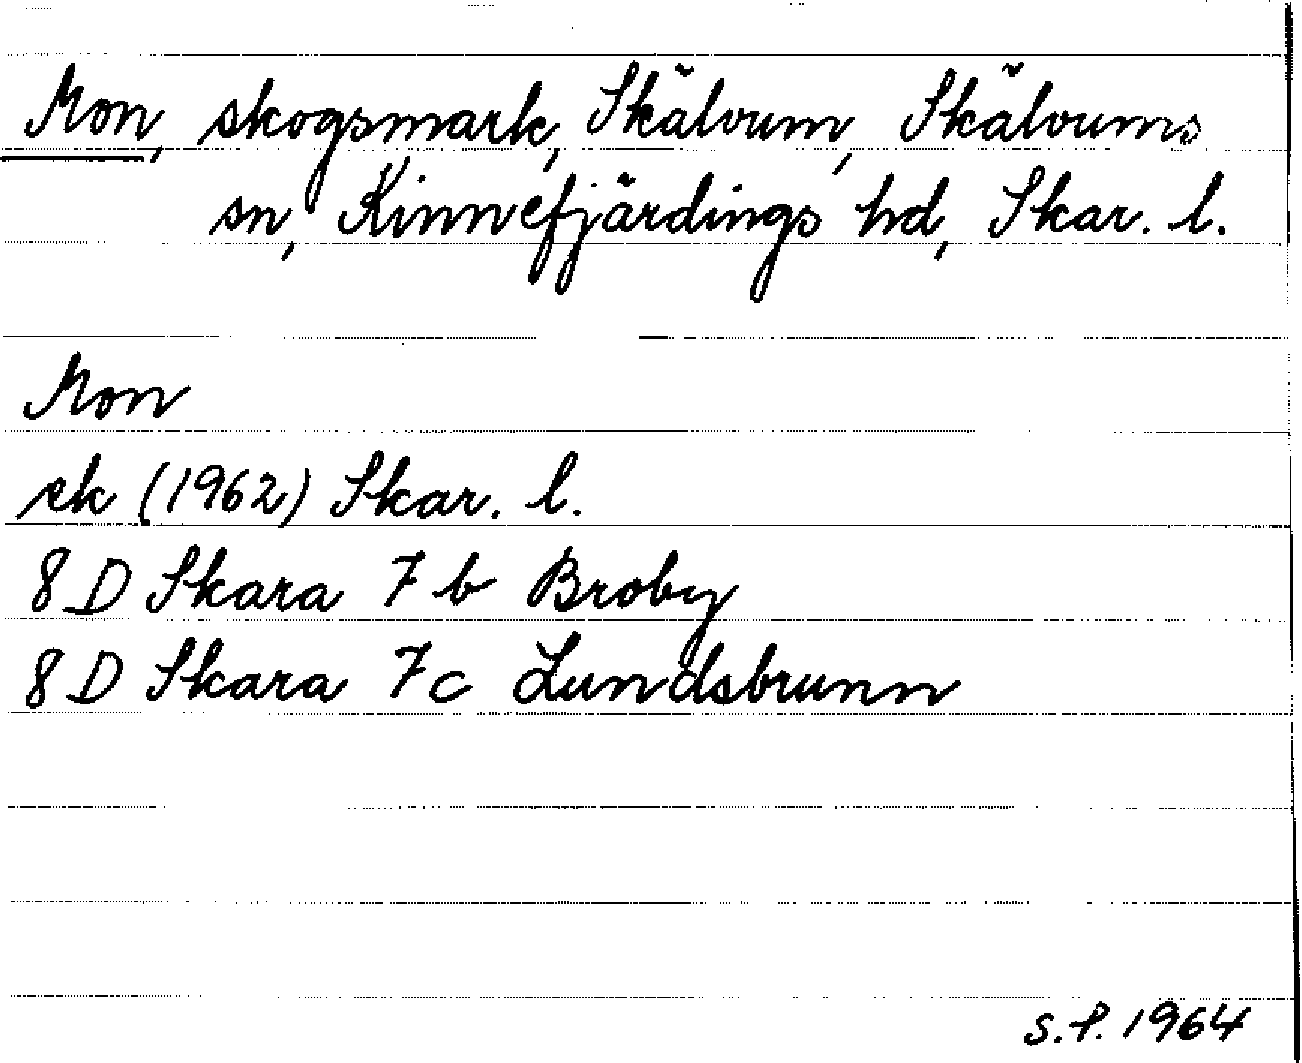 Mon, skogsmark, Skälvum, Skälvums
sn, Kinnefjärdings hd, Skar. l.
Mon
ek (1962) Skar. l.
8D Skara 7b Broby
8D Skara 7c Lundsbrunn
S.P. 1964